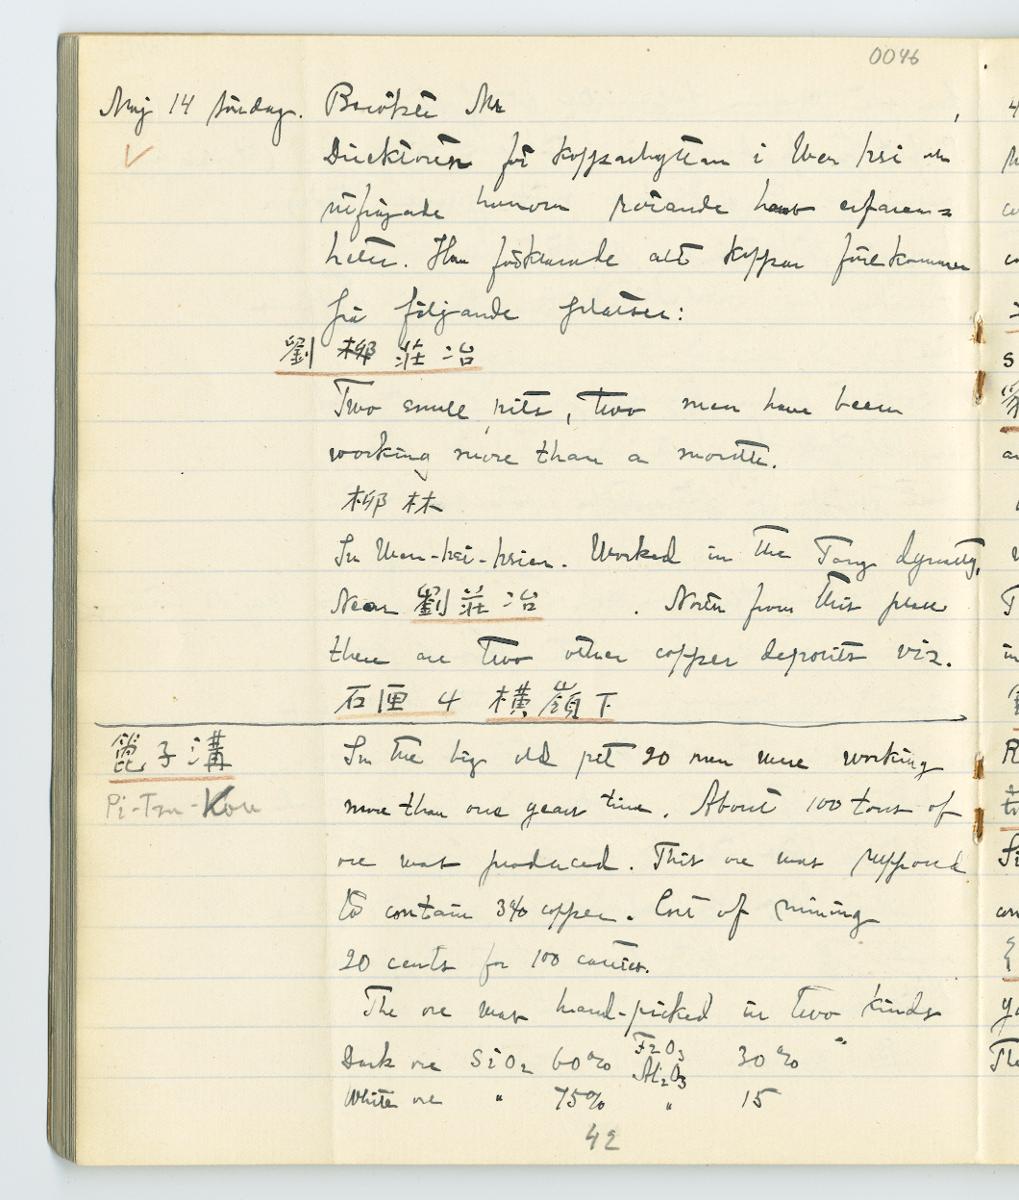 0046
Maj 14 söndag. Besökte Mr ,
Direktören för kopparhyttan i Wen hsi och
utfrågade honom rörande hans erfaren=
heter. Han förklarade att koppar förekommer
på följande platser:
劉柳莊冶
Two small pits, two men have been
working more than a month.
柳林
In Wen-hsi-hsien. Worked in the Tang dynasty.
Near 劉莊冶 . North from this place
there are two other copper deposits viz.
石匣4 橫嶺下
篦子溝 In the big old pit 20 men were working
Pi-Tzu-Kou more than one years time. About 100 tons of
ore was produced. This ore was supposed
to contain 3% copper. Cost of mining
20 cents for 100 catties.
The ore was hand-picked in two kinds
Dark ore SiO2 60% Fe2O3 Al2O3 30% "
White ore " 75% " 15
42